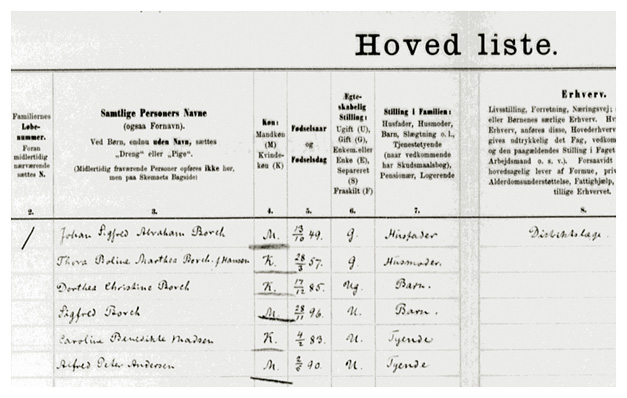 Hovedliste.
Familiernes
Løbe-
nummer.
Foran
midlertidig
nærværende
sættes N.
2.
Samtlige Personers Navne
(ogsaa Fornavn).
Ved Børn, endnu uden Navn, sættes
„Dreng" eller „Pige".
(Midlertidig fraværende Personer opføres ikke her,
men paa Skemaets Bagside)
3.
Køn:
Mandkøn
(M)
Kvinde-
køn (K)
4.
Fødselsaar
og
Fødselsdag
5.
Ægte-
skabelig
Stilling:
Ugift (U),
Gift (G),
Enkem. eller
Enke (E),
Separeret
(S)
Fraskilt (F)
6.
Stilling i Familien:
Husfader, Husmoder,
Barn, Slægtning o. l.,
Tjenestetyende
(naar vedkommende
har Skudsmaalsbog),
Pensionær, Logerende
7.
Erhverv.
Livsstilling, Forretning, Næringsvej;
eller Børnenes særlige Erhverv. H
Erhverv, anføres disse, Hovederhverv
gives udtrykkelig det Fag, vedkom
og den paagældendes Stilling i Faget
Arbejdsmand o. s. v.). Forsaavidt
hovedsagelig lever af Formue, priv
Alderdomsunderstøttelse, Fattighjælp,
tillige Erhvervet.
8.
/ Johan Sigfred Abraham Borch M. 13/10 49. G. Husfader Distriktslæge.
Thora Boline Marthea Borch. f. Hansen K. 28/3 57. G. Husmoder.
Dorthea Christine Borch K. 17/12 85. Ug. Barn.
Sigfred Borch M. 28/11 96. U. Barn.
Caroline Benedikte Madsen K. 4/2 83. U. Tyende
Alfred Peter Andersen M. 90. U. Tyende